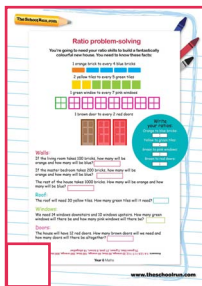 TheSchoolRun.com
Ratio problem-solving
You're going to need your ratio skills to build a fantastically
colourful new house. You need to know these facts:
1 orange brick to every 4 blue bricks
2 yellow tiles to every 5 green tiles
1 green window to every 7 pink windows
1 brown door to every 2 red doors
Write
your ratios:
Orange to blue bricks
Yellow to green tiles
Green to pink windows
Brown to red doors
Walls:
If the living room takes 100 bricks, how many will be
orange and how many will be blue?
If the master bedroom takes 200 bricks, how many will be
orange and how many will be blue?
The rest of the house takes 1000 bricks. How many will be orange and how
many will be blue?
Roof:
The roof will need 50 yellow tiles. How many green tiles will it need?
Windows:
We need 14 windows downstairs and 10 windows upstairs. How many green
windows will there be and how many pink windows will there be?
Doors:
The house will have 12 red doors. How many brown doors will we need and
how many doors will there be altogether?
Year 6 Maths
www.theschoolrun.com